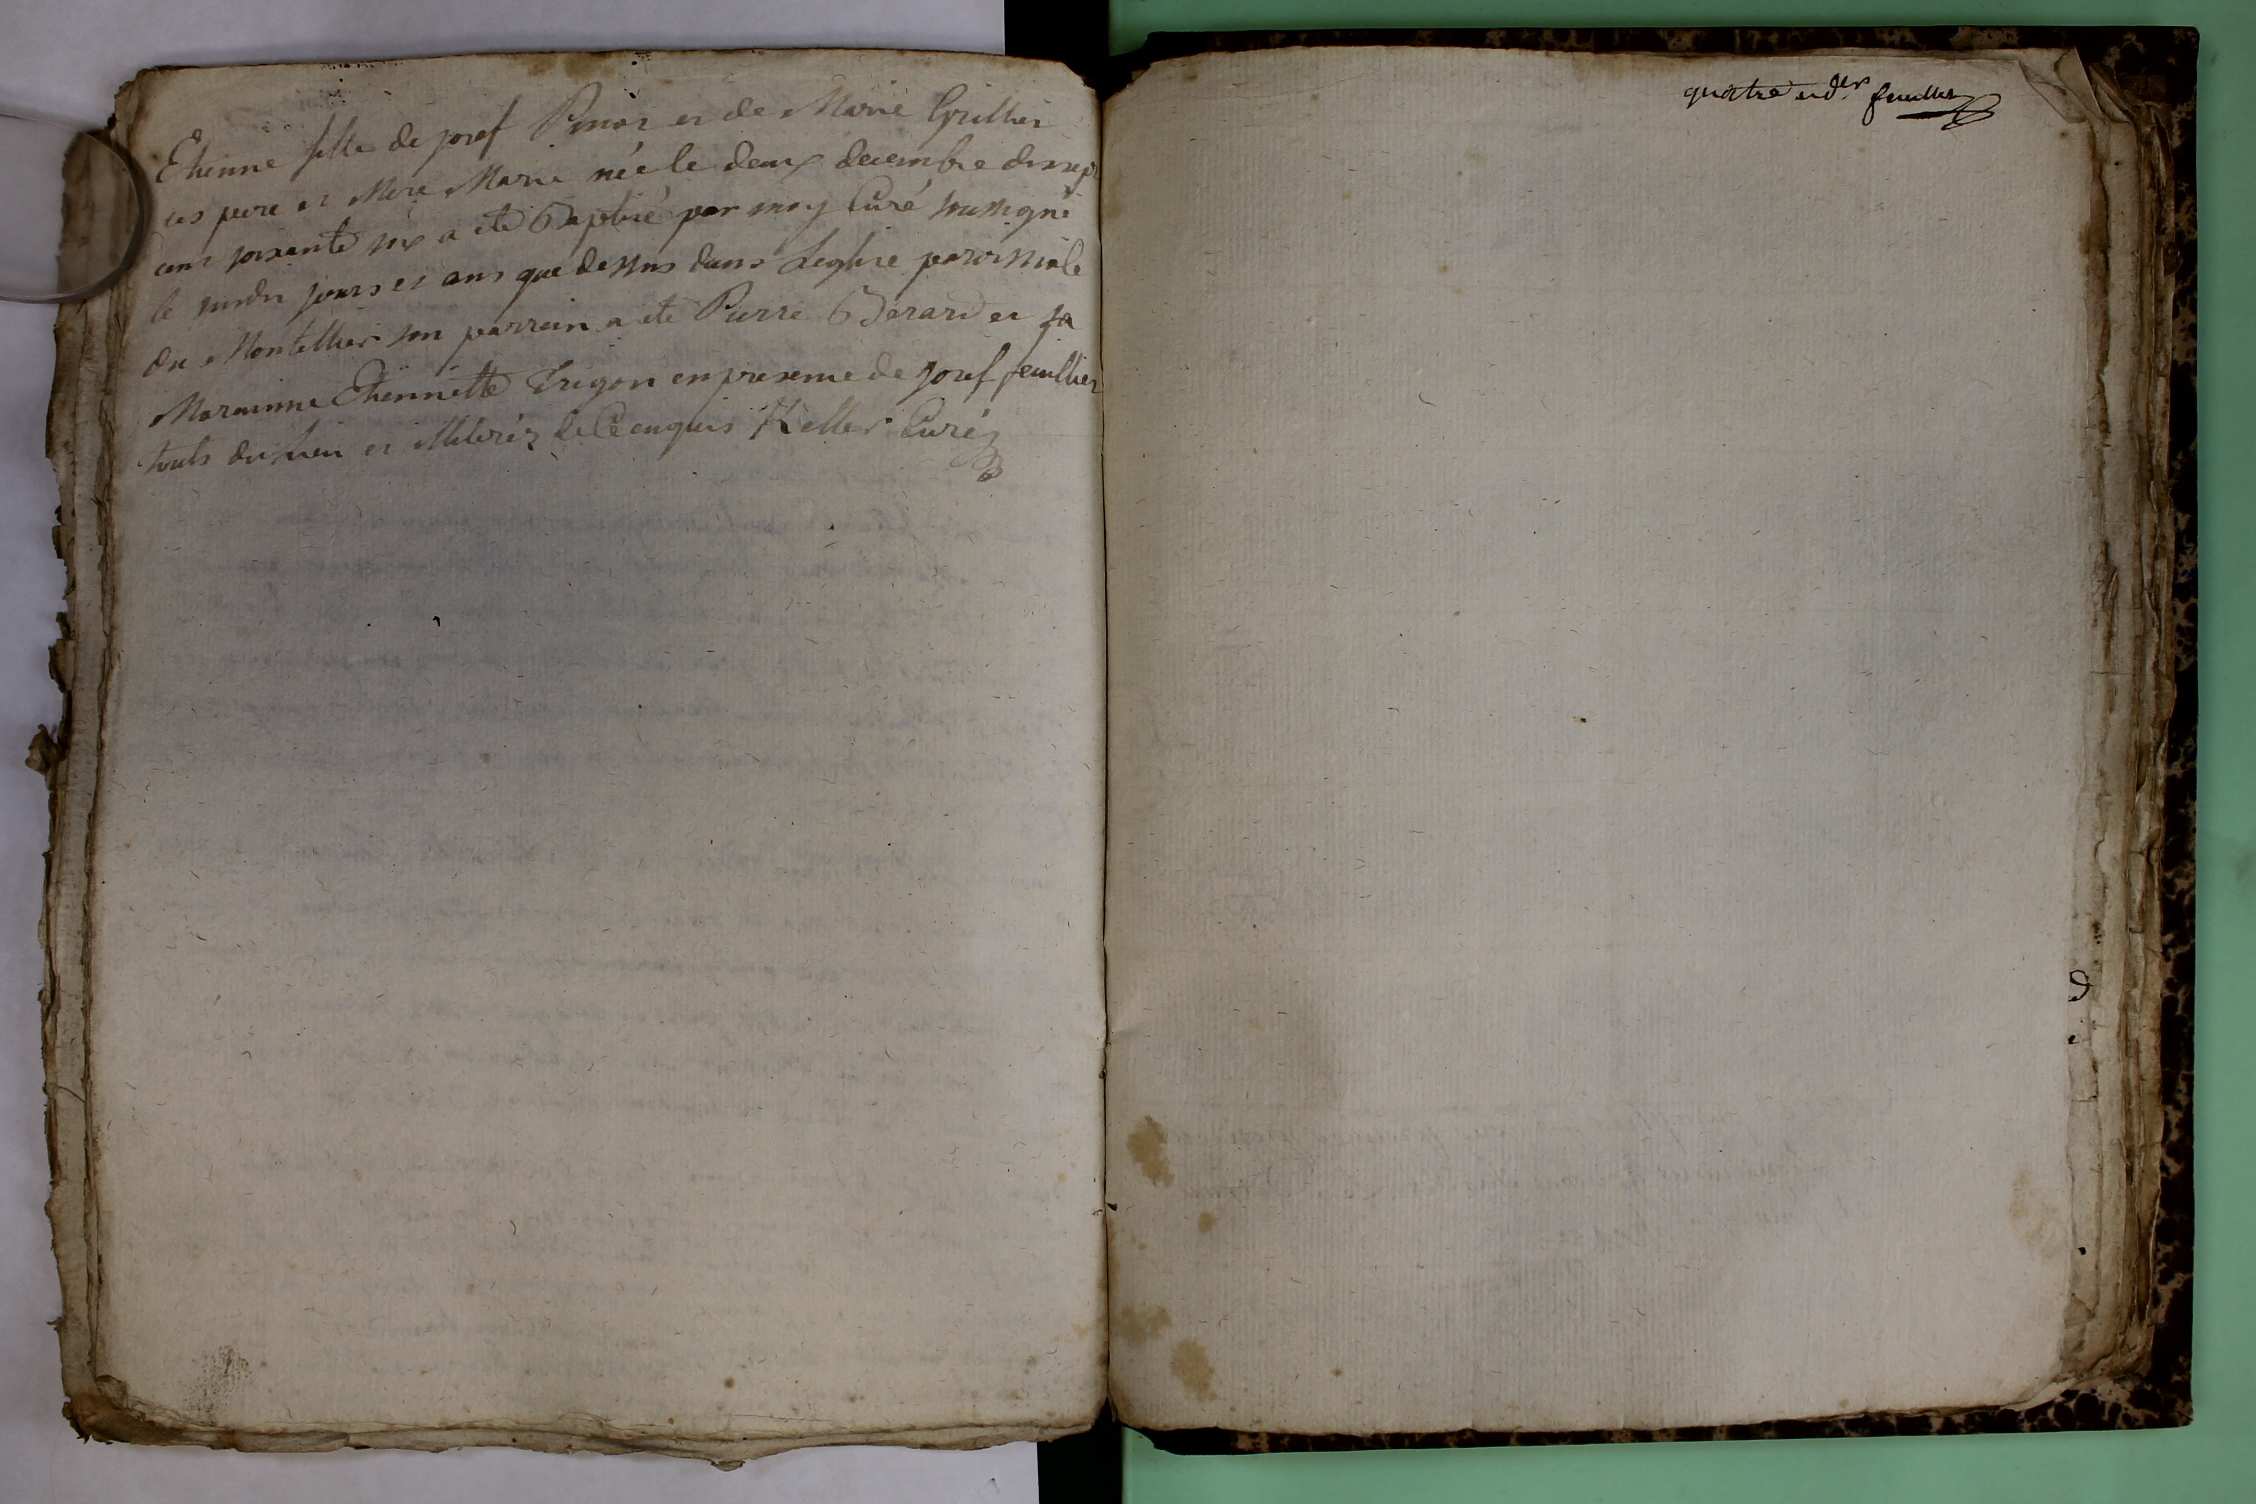 Etienne fille de josef Pinot et de Marie Grillier
ses pere et Mere Marie née le deux decembre dixsept
cent soixante six a ete Baptisé par moy Curé soussigné
le susdit jours et ans que dessus dans Leglise paroissiale
du Montellier son parrain a ete Pierre Berard et sa
Marainne Etiennette Trigon en presence de josef feuillet
touts du lieu et illiterez de Ce enquis Keller Curé
quatre et der feuillet